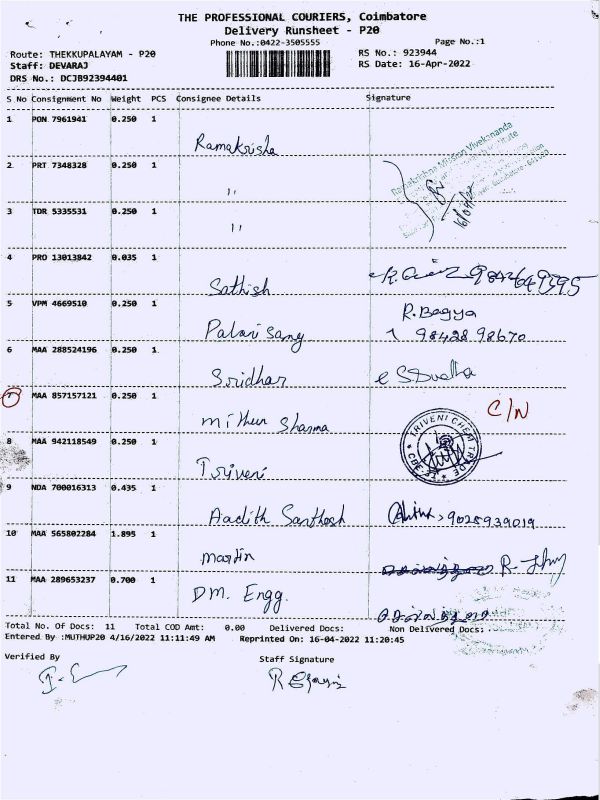 THE PROFESSIONAL COURIERS, Coimbatore
Delivery Runsheet - P20
Phone No.:0422-3505555
Page No.:1
Route: THEKKUPALAYAM - P20
RS No.: 923944
Staff: DEVARAJ
RS Date: 16-Apr-2022
DRS No.: DCJB92394401
S No Consignment No Weight PCS Consignee Details Signature
1 PON 7961941 0.250 1
Ramakrisha
Ramakrishna Mission Vivekananda
2 PRT 7348328 0.250 1
"
16/04/22
3 TDR 5335531 0.250 1
"
4 PRO 13013842 0.035 1
Sathish
9842649395
5 VPM 4669510 0.250 1
Palani Samy
R. Bagya
98428 98670
6 MAA 288524196 0.250 1
Sridhar
7 MAA 857157121 0.250 1
Mithun Sharma
C/N
8 MAA 942118549 0.250 1
Triveni
TRIVENI CHEM TRADE
CBE
9 NDA 700016313 0.435 1
Aadith Santhosh
9028939019
10 MAA 565802284 1.895 1
Martin
11 MAA 289653237 0.700 1
DM. Engg.
Total No. Of Docs: 11 Total COD Amt: 0.00 Delivered Docs: Non Delivered Docs:
Entered By :MUTHUP20 4/16/2022 11:11:49 AM Reprinted On: 16-04-2022 11:20:45
Verified By
Staff Signature